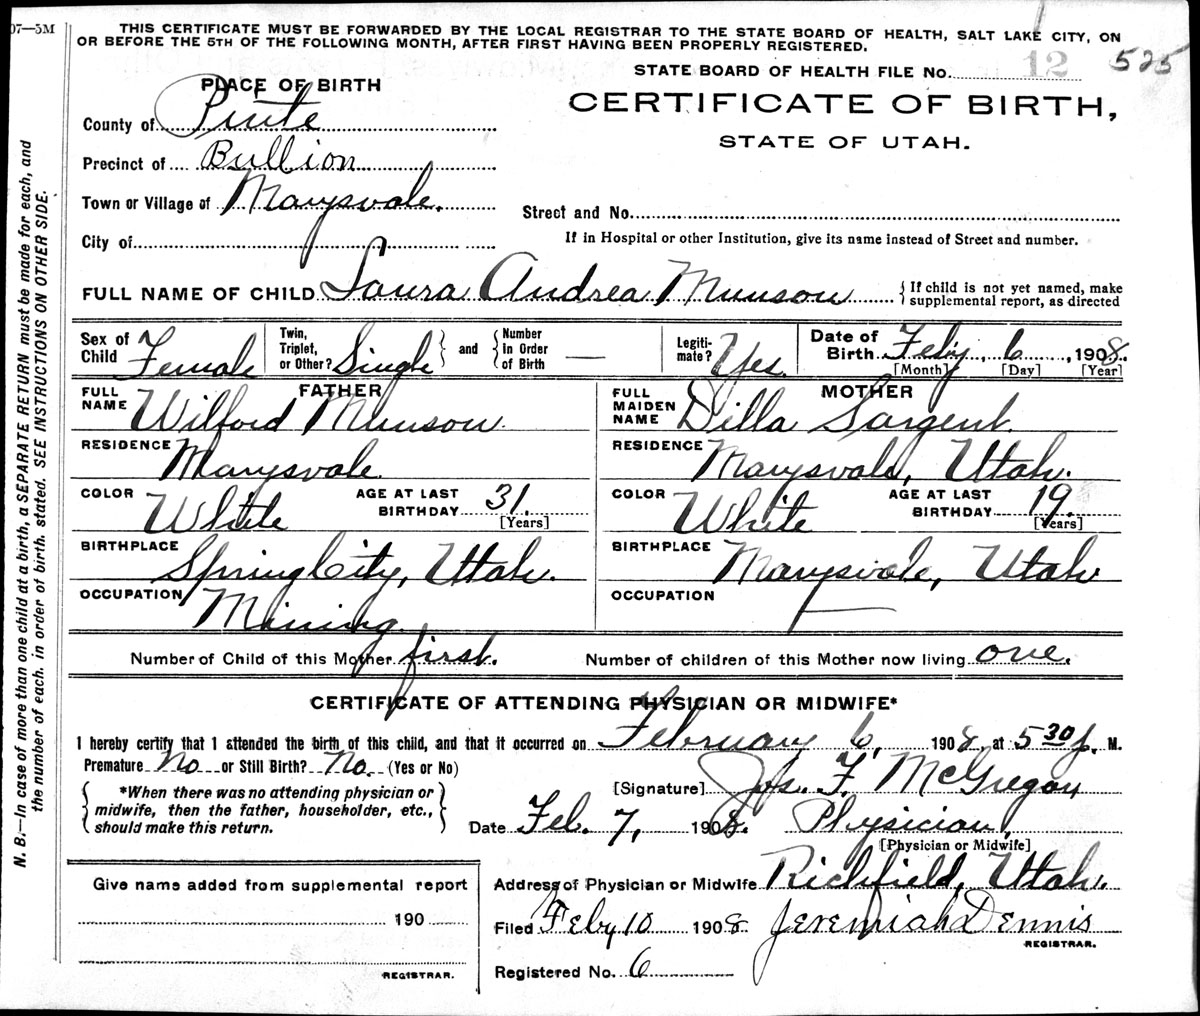 07—5M
THIS CERTIFICATE MUST BE FORWARDED BY THE LOCAL REGISTRAR TO THE STATE BOARD OF HEALTH, SALT LAKE CITY, ON
OR BEFORE THE 5TH OF THE FOLLOWING MONTH, AFTER FIRST HAVING BEEN PROPERLY REGISTERED.
STATE BOARD OF HEALTH FILE No. 12 525
PLACE OF BIRTH
CERTIFICATE OF BIRTH,
STATE OF UTAH.
County of Piute
Precinct of Bullion
Town or Village of Marysvale.
Street and No.
City of
If in Hospital or other Institution, give its name instead of Street and number.
FULL NAME OF CHILD Laura Andrea Munson
{ If child is not yet named, make
supplemental report, as directed
Sex of Child Female
Twin, Triplet, or Other? Single } and { Number In Order of Birth —
Legiti-mate? Yes.
Date of Birth Feby. 6, 1908.
[Month] [Day] [Year]
FATHER
FULL NAME Wilford Munson.
RESIDENCE Marysvale
COLOR White
AGE AT LAST BIRTHDAY 31. [Years]
BIRTHPLACE Spring City, Utah.
OCCUPATION Mining.
MOTHER
FULL MAIDEN NAME Dilla Sargent.
RESIDENCE Marysvale, Utah.
COLOR White
AGE AT LAST BIRTHDAY 19. [Years]
BIRTHPLACE Marysvale, Utah
OCCUPATION
Number of Child of this Mother first. Number of children of this Mother now living one.
CERTIFICATE OF ATTENDING PHYSICIAN OR MIDWIFE*
I hereby certify that I attended the birth of this child, and that it occurred on February 6, 1908, at 5 30 p. M.
Premature No or Still Birth? No. (Yes or No)
{ *When there was no attending physician or
midwife, then the father, householder, etc.,
should make this return. }
[Signature] Jos. F. McGregor
Date Feb. 7, 1908. Physician,
[Physician or Midwife]
Address of Physician or Midwife Richfield, Utah.
Give name added from supplemental report
190
REGISTRAR.
Filed Feby 10 1908 Jeremiah Dennis
REGISTRAR.
Registered No. 6
N. B.—In case of more than one child at a birth, a SEPARATE RETURN must be made for each, and
the number of each, in order of birth, stated. SEE INSTRUCTIONS ON OTHER SIDE.